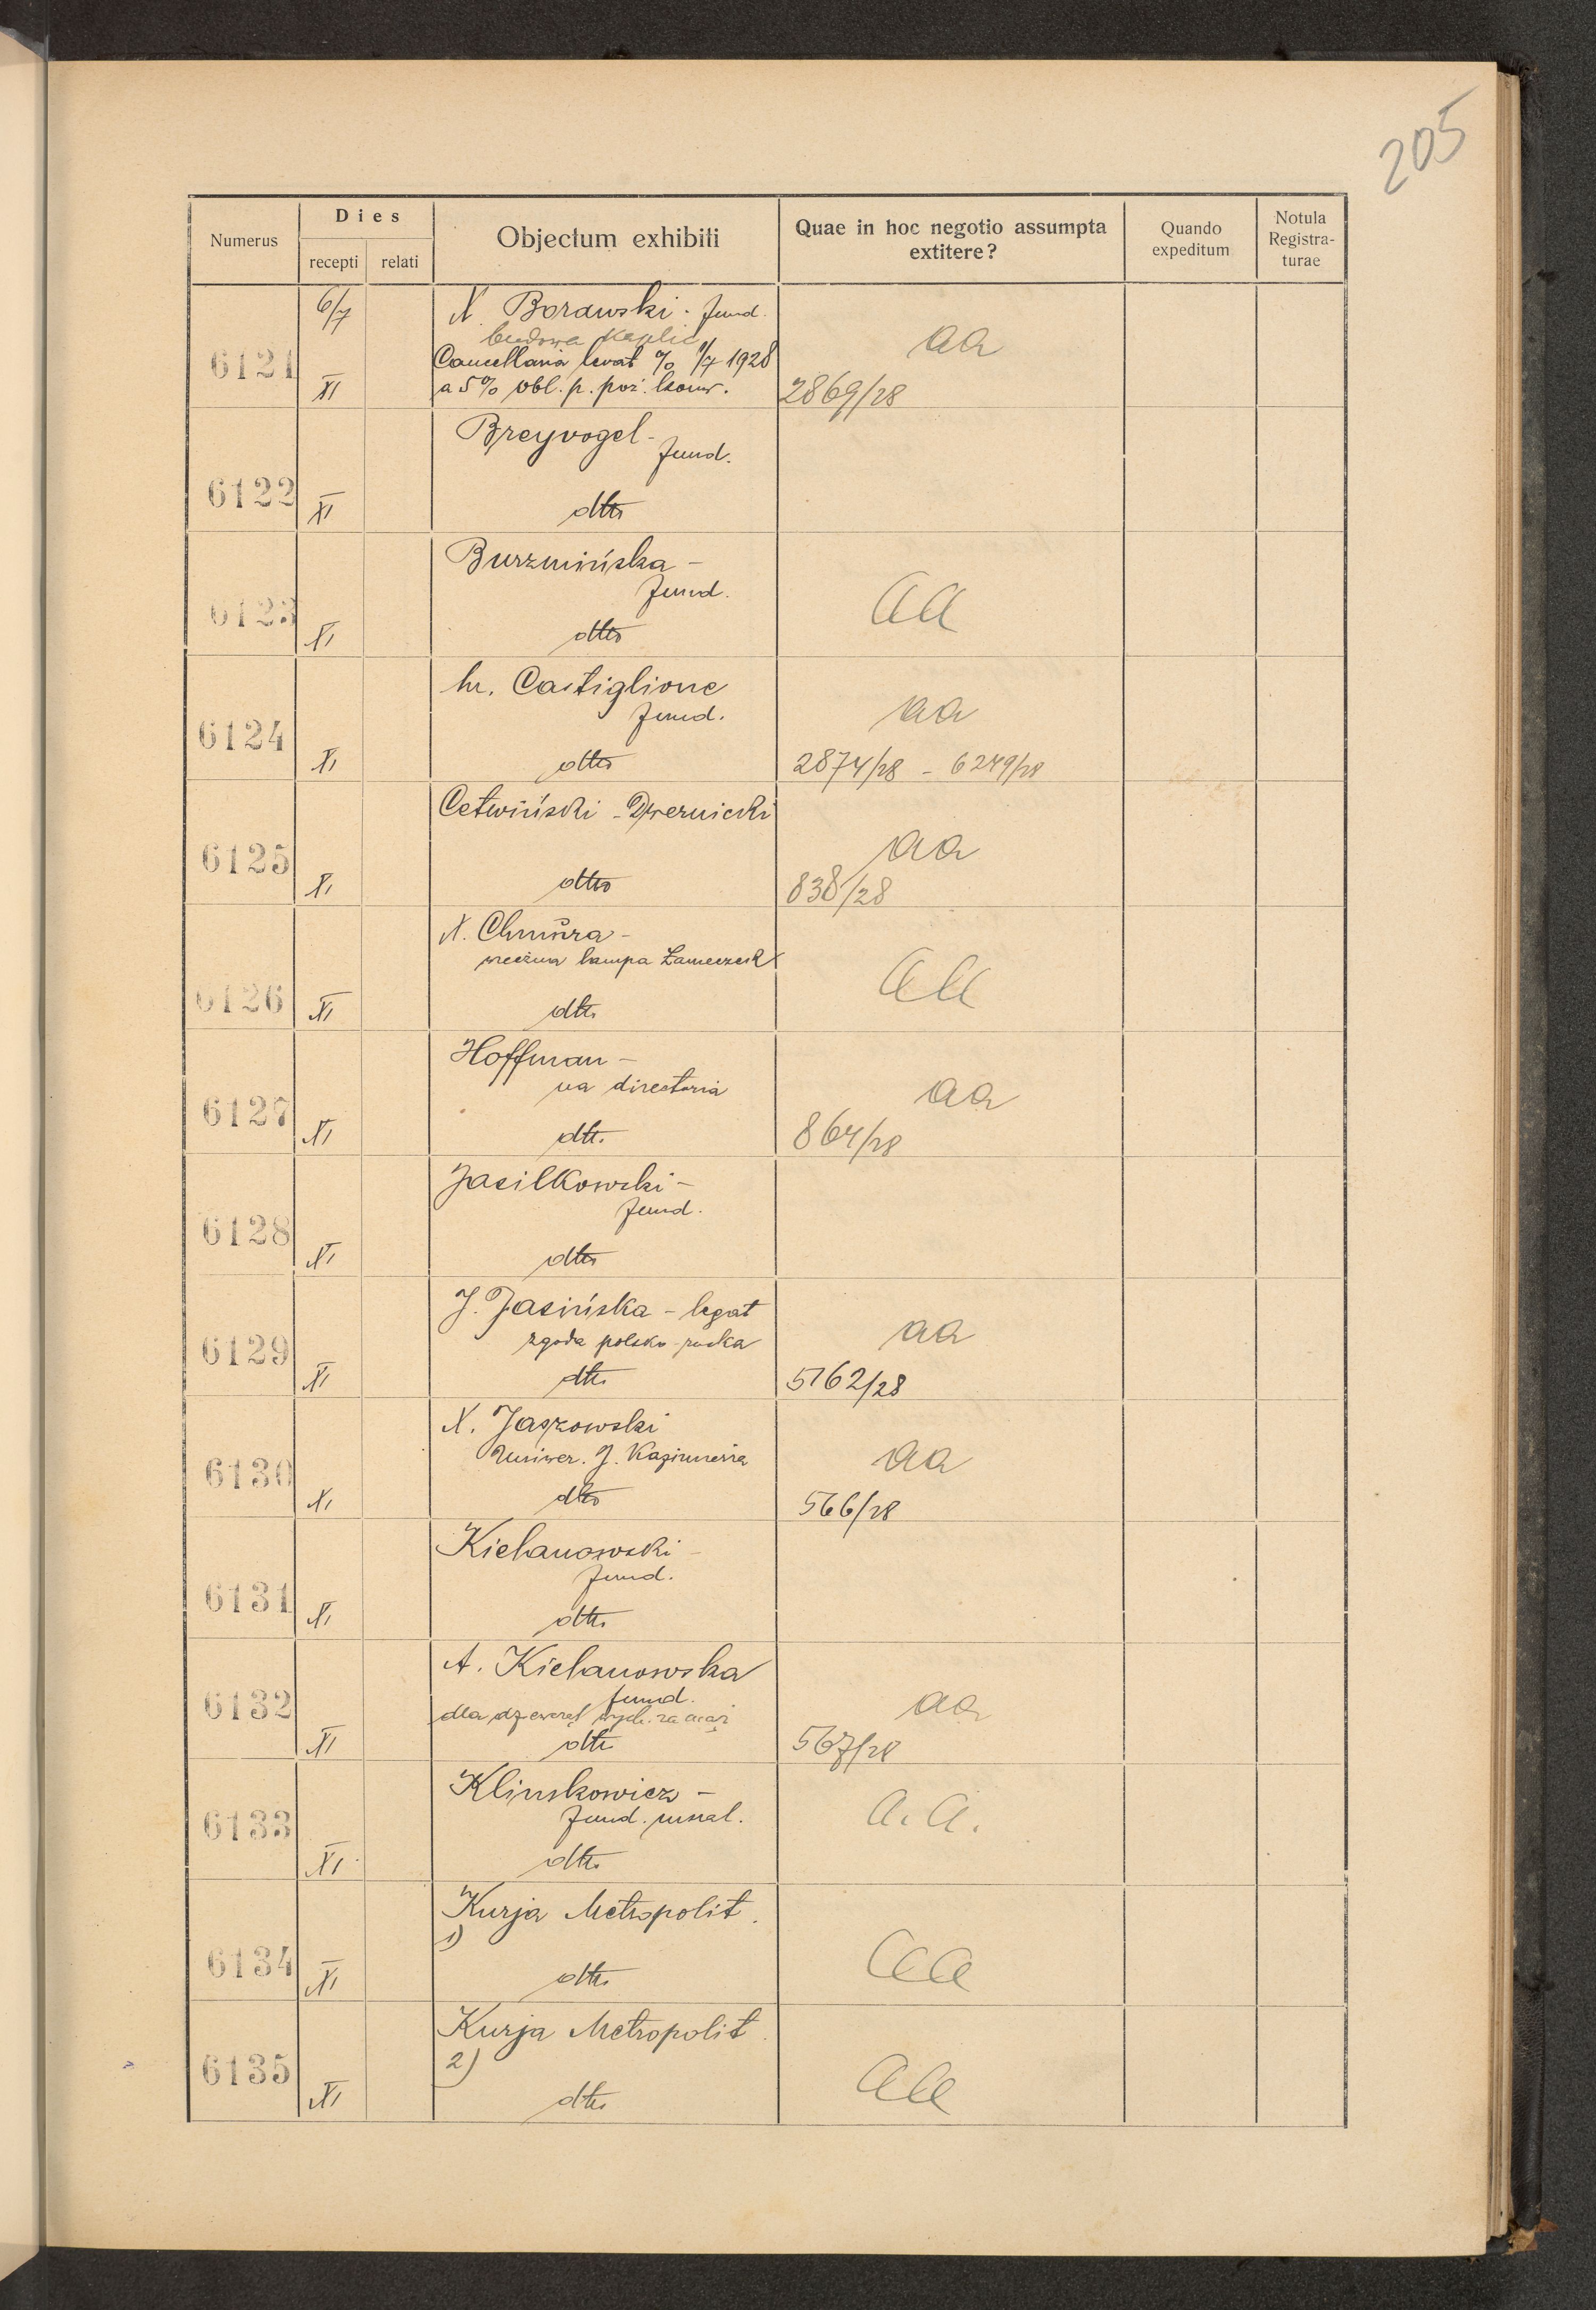 205
Numerus
Dies
recepti
relati
Objectum exhibiti
Quae in hoc negotio assumpta
extitere?
Quando
expeditum
Notula
Registra-
turae
6121
6/7
XI
X. Borawski - fund.
budowa kaplic
Cancellaria levat % 1/7 1928
a 5% obl. p. poż. konw.
aa
2869/28
6122
XI
Breyvogel -
fund.
dtto
6123
XI
Burzmińska -
fund.
dtto
aa
6124
XI
hr. Castiglione
fund.
dtto
aa
2874/28 - 6249/28
6125
XI
Cetwiński - Dwernicki
dtto
aa
838/28
6126
XI
X. Chmura -
wieczna lampa
dtto
aa
6127
XI
Hoffman -
na directoria
dtto
aa
864/28
6128
XI
Jasilkowski -
fund.
dtto
6129
XI
J. Jasińska - legat
zgoda polsko-ruska
dtto
aa
5762/28
6130
XI
X. Jaszowski
Uniwer. J. Kazimierza
dtto
aa
566/28
6131
XI
Kiehanowski -
fund.
dtto
6132
XI
A. Kiehanowska
fund.
dla dziewcząt wych. za mąż
dtto
aa
567/28
6133
XI
Klimkowicz -
fund. mszal.
dtto
a. a.
6134
XI
Kurja Metropolit.
1)
dtto
aa
6135
XI
Kurja Metropolit.
2)
dtto
aa